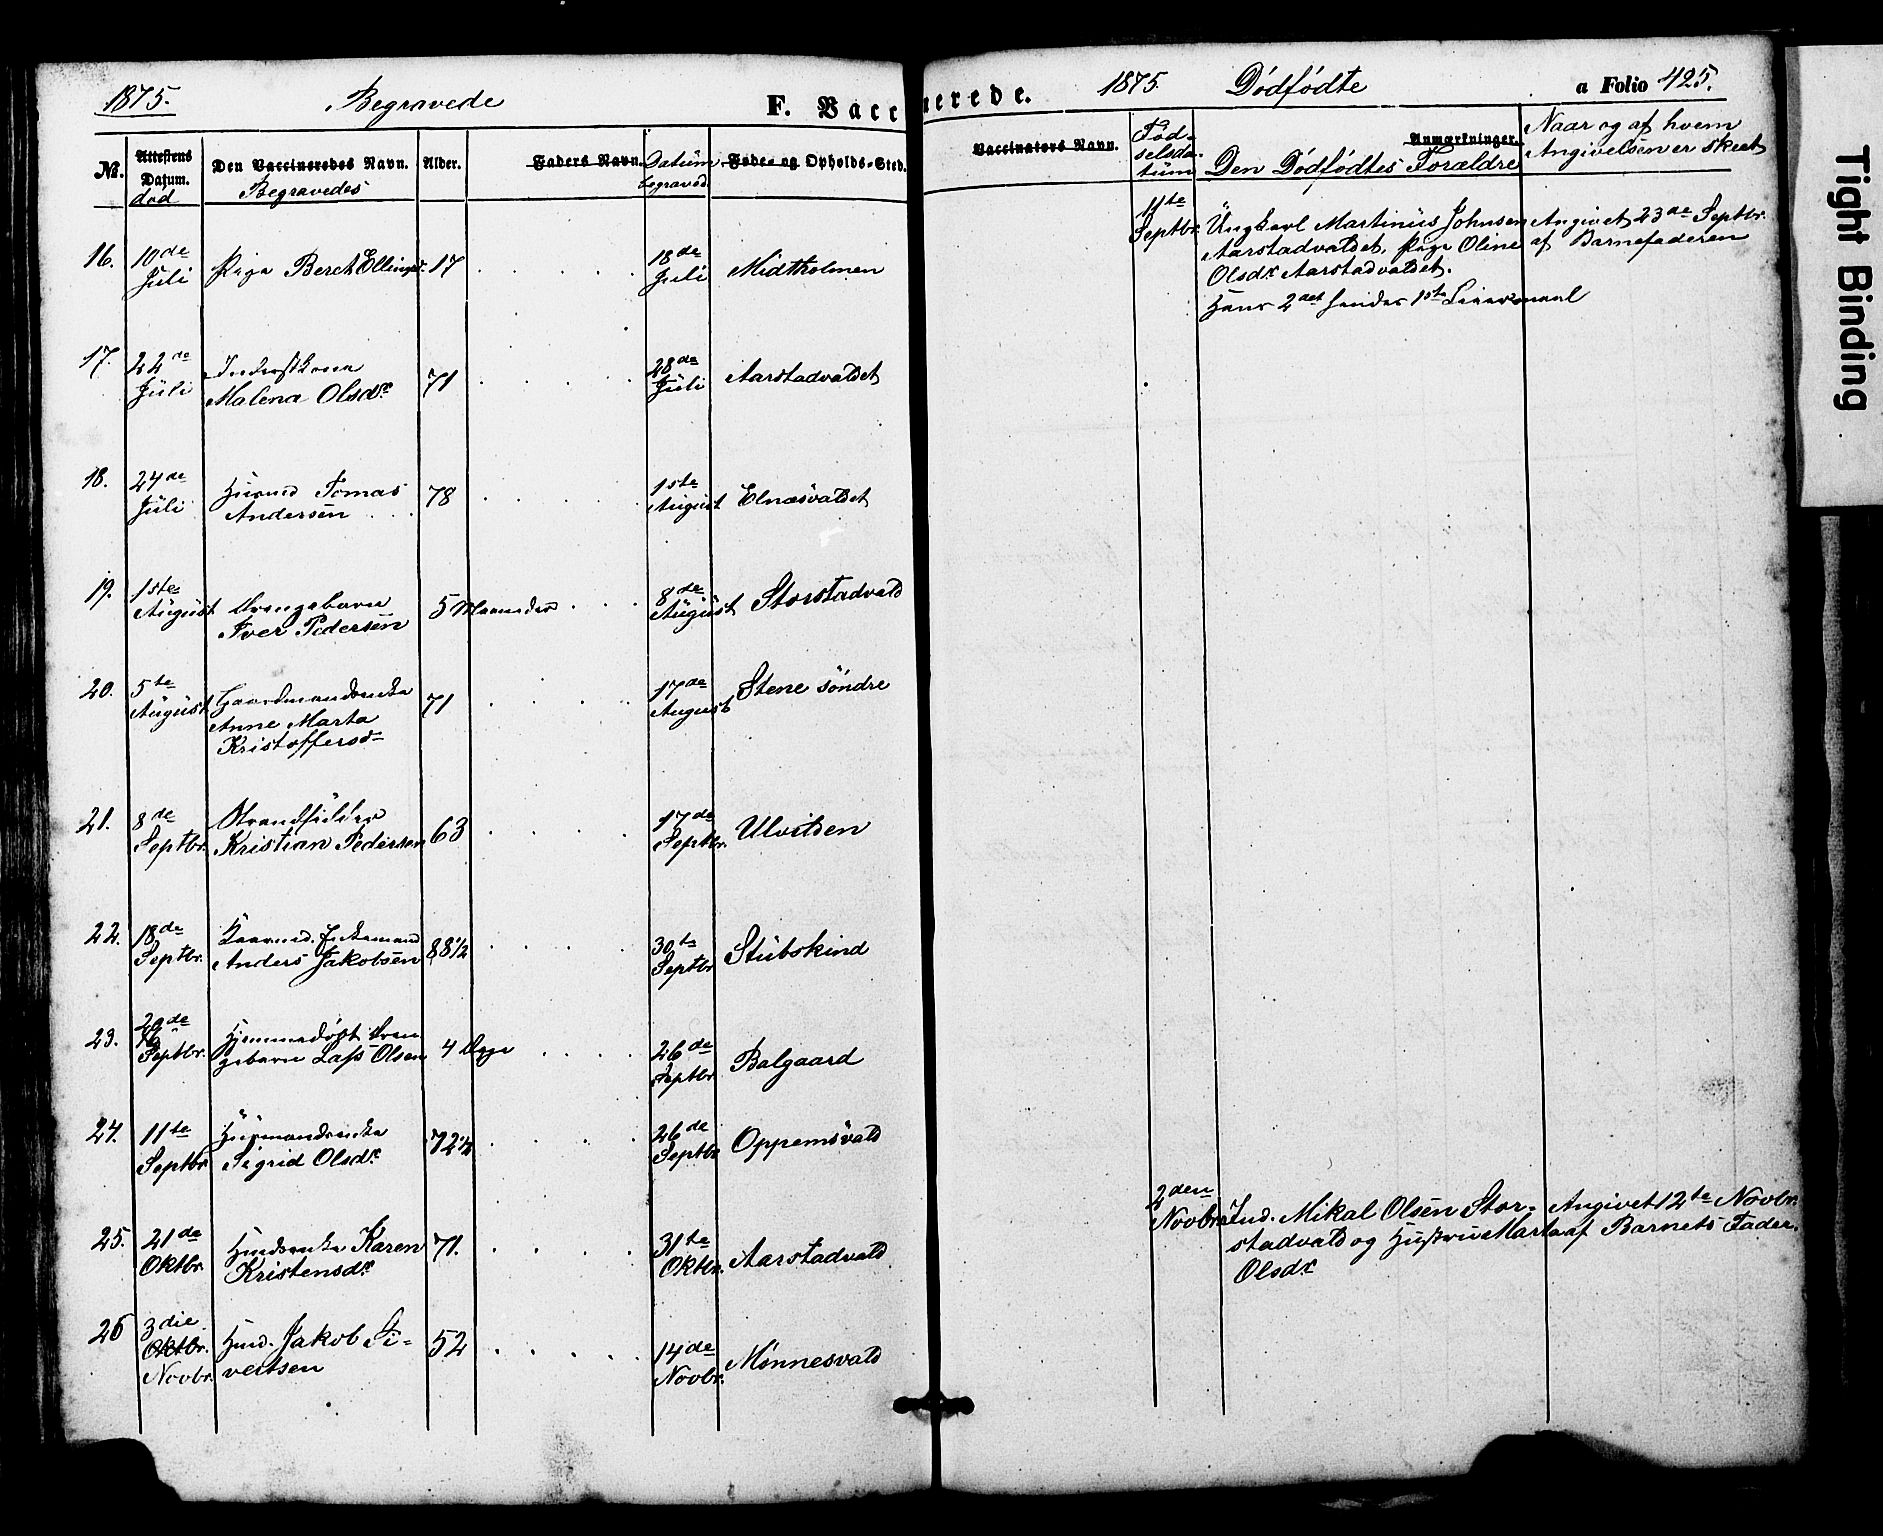 1875.
Begravede
F. Vaccinerede.
1875.
Dödfödte
a Folio 425.
№.
Attestens Datum.
död
Den Vaccineredes Navn.
Begravedes
Alder.
Faders Navn.
Datum begraved
Føde- og Opholds-Sted.
Vaccinators Navn.
Födselsdatum
Anmærkninger.
Den Dödfödtes Forældre
Naar og af hvem
Angivelsen er skeet
16. 10de Juli Pige Beret Ellingsd. 17 18de Juli Midtholmen
17. 22de Juli Inderstkone
Malena Olsdr 71 28de Juli Aarstadvaldet
18. 24de Juli Tomas
Andersen 78 1ste August Elnæsvaldet
19. 1ste August Drengebarn
Iver Pedersen 5 Maaneder 8de August Storstadvald
20. 5te August Gaardmandsenke
Anne Marta
Kristoffersd 71 17de August Stene söndre
21. 8de Septbr. Strandsidder
Kristian Pedersen 63 17de Septbr. Ulvilden
22. 18de Septbr.
Anders Jakobsen 88 1/2 30te Septbr Stubskind
23. 20de Septbr. Hjemmedöbt Dren
gebarn Lass Olsen 4 Dage 26de Septbr Balgaard
24. 11te Septbr Husmandsenke
Sigrid Olsdr 72 1/2 26de Septbr Oppemsvald
25. 21de Oktbr Karen
Kristensdr 71. 31te Oktbr. Aarstadvald
26 3die Oktbr. Novbr. Husmd. Jakob Si-
vertsen 52 14de Novbr. Monnesvald
11te Septbr. Ungkarl Martinus Johnsen Angivet 23de Septbr.
Aarstadvaldet, Pige Oline af Barnefaderen
Olsdr Aarstadvaldet.
Hans 2det hendes 1ste Leiermaal
2den Novbr. Ind. Mikal Olsen Stor- Angivet 12te Novbr.
stadvald og Hustru Marta af Barnets Fader.
Olsdr
Tight Binding